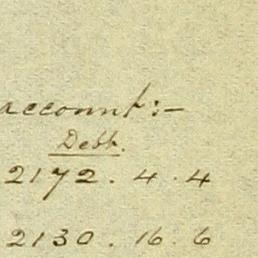 account:-
Debt.
2172 . 4 . 4
2130 . 16 . 6